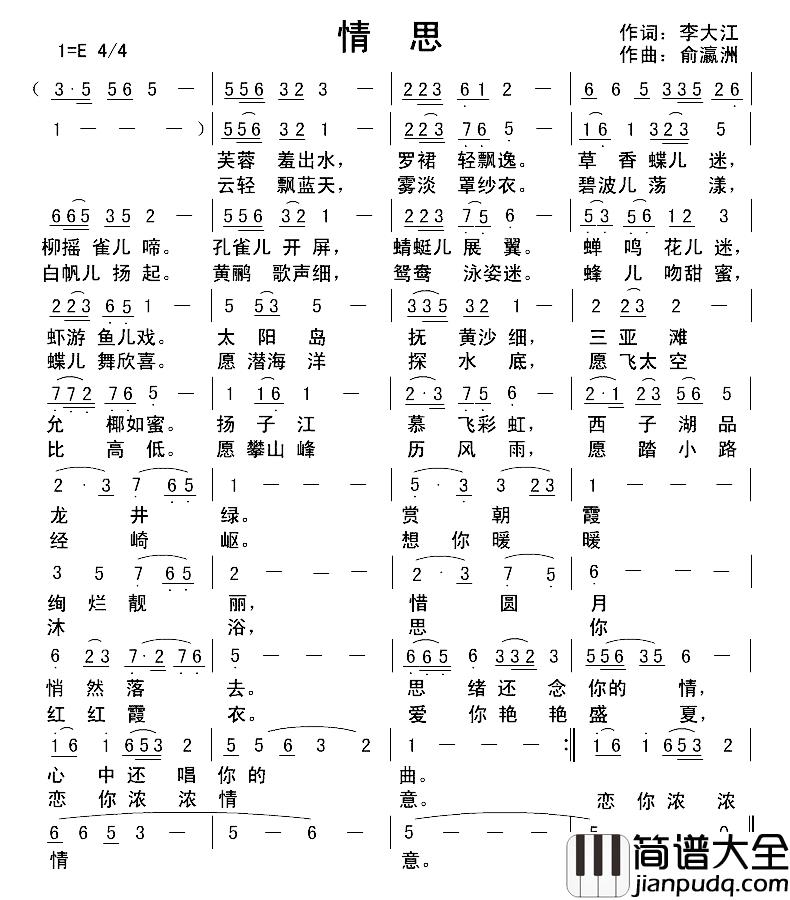 情 思
作词：李大江
1=E 4/4
作曲：俞瀛洲
（ 3·5 56 5 — | 556 32 3 — | 223 61 2 — | 6 6 5 3 335 26 |
1 — — — ） | 556 32 1 — | 223 76 5 — | 16 1 323 5 |
芙蓉 羞出水， 罗裙 轻飘逸。 草 香 蝶儿 迷，
云轻 飘蓝天， 雾淡 罩纱衣。 碧波儿 荡 漾，
665 35 2 — | 556 32 1 — | 223 75 6 — | 53 56 12 3 |
柳摇 雀儿 啼。 孔雀儿 开 屏， 蜻蜓儿 展 翼。 蝉 鸣 花儿 迷，
白帆儿 扬 起。 黄鹂 歌声细， 鸳鸯 泳姿迷。 蜂 儿 吻甜 蜜，
223 65 1 — | 5 53 5 — | 335 32 1 — | 2 23 2 — |
虾游 鱼儿戏。 太 阳 岛 抚 黄沙 细， 三 亚 滩
蝶儿 舞欣喜。 愿 潜海 洋 探 水 底， 愿 飞太 空
772 76 5 — | 1 16 1 — | 2·3 75 6 — | 2·1 23 56 5 |
允 椰如蜜。 扬 子 江 慕 飞彩 虹， 西 子 湖 品
比 高 低。 愿 攀山 峰 历 风 雨， 愿 踏 小 路
2· 3 7 65 | 1 — — — | 5· 3 3 23 | 1 — — — |
龙 井 绿。 赏 朝 霞
经 崎 岖。 想 你 暖 暖
3 5 7 65 | 2 — — — | 2· 3 7 5 | 6 — — — |
绚 烂 靓 丽， 惜 圆 月
沐 浴， 思 你
6 23 7·2 76 | 5 — — — | 665 6 332 3 | 556 35 6 — |
悄 然 落 去。 思 绪 还 念 你的 情，
红 红 霞 衣。 爱 你 艳 艳 盛 夏，
16 1 653 2 | 5 5 6 3 2 | 1 — — — :‖ 16 1 653 2 |
心 中 还 唱 你 的 曲。
恋 你 浓 浓 情 意。 恋 你 浓 浓
6 6 2 3 — | 6 — — — | 5 — — — | 5 0 ‖
情 意。
简谱大全
jianpudq.com